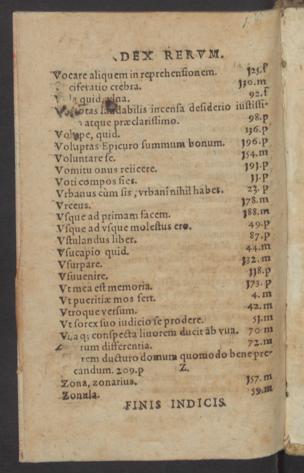 DEX RERVM.
Vocare aliquem in reprehensionem. 125.f
ciferatio crebra. 110.m
quid 92.f
laudabilis incensa desiderio iustissi-
atque præclarissimo. 98.p
Volupe, quid. 136.p
Voluptas Epicuro summum bonum. 196.p
Voluntare se. 154.m
Vomitu onus reiicere. 191.p
Voti compos sies. 11.p
Vrbanus cùm sis, vrbani nihil habes. 23.p
Vrceus. 178.m
Vsque ad primam facem. 188.m
Vsque ad vsque molestus ero. 49.p
Vstulandus liber. 87.p
Vsucapio quid. 44.m
Vsurpare. 132.m
Vsuuenire. 118.p
Vt mea est memoria. 173.p
Vt pueritiæ mos fert. 4.m
Vtroque versum. 42.m
Vt sorex suo iudicio se prodere. 51.m
Vua q; conspecta liuorem ducit ab vua. 70.m
rum differentia. 72.m
rem ducturo domum quomodo bene pre-
candum. 209.p
Z.
Zona, zonarius. 157.m
Zonula. 59.m
FINIS INDICIS.